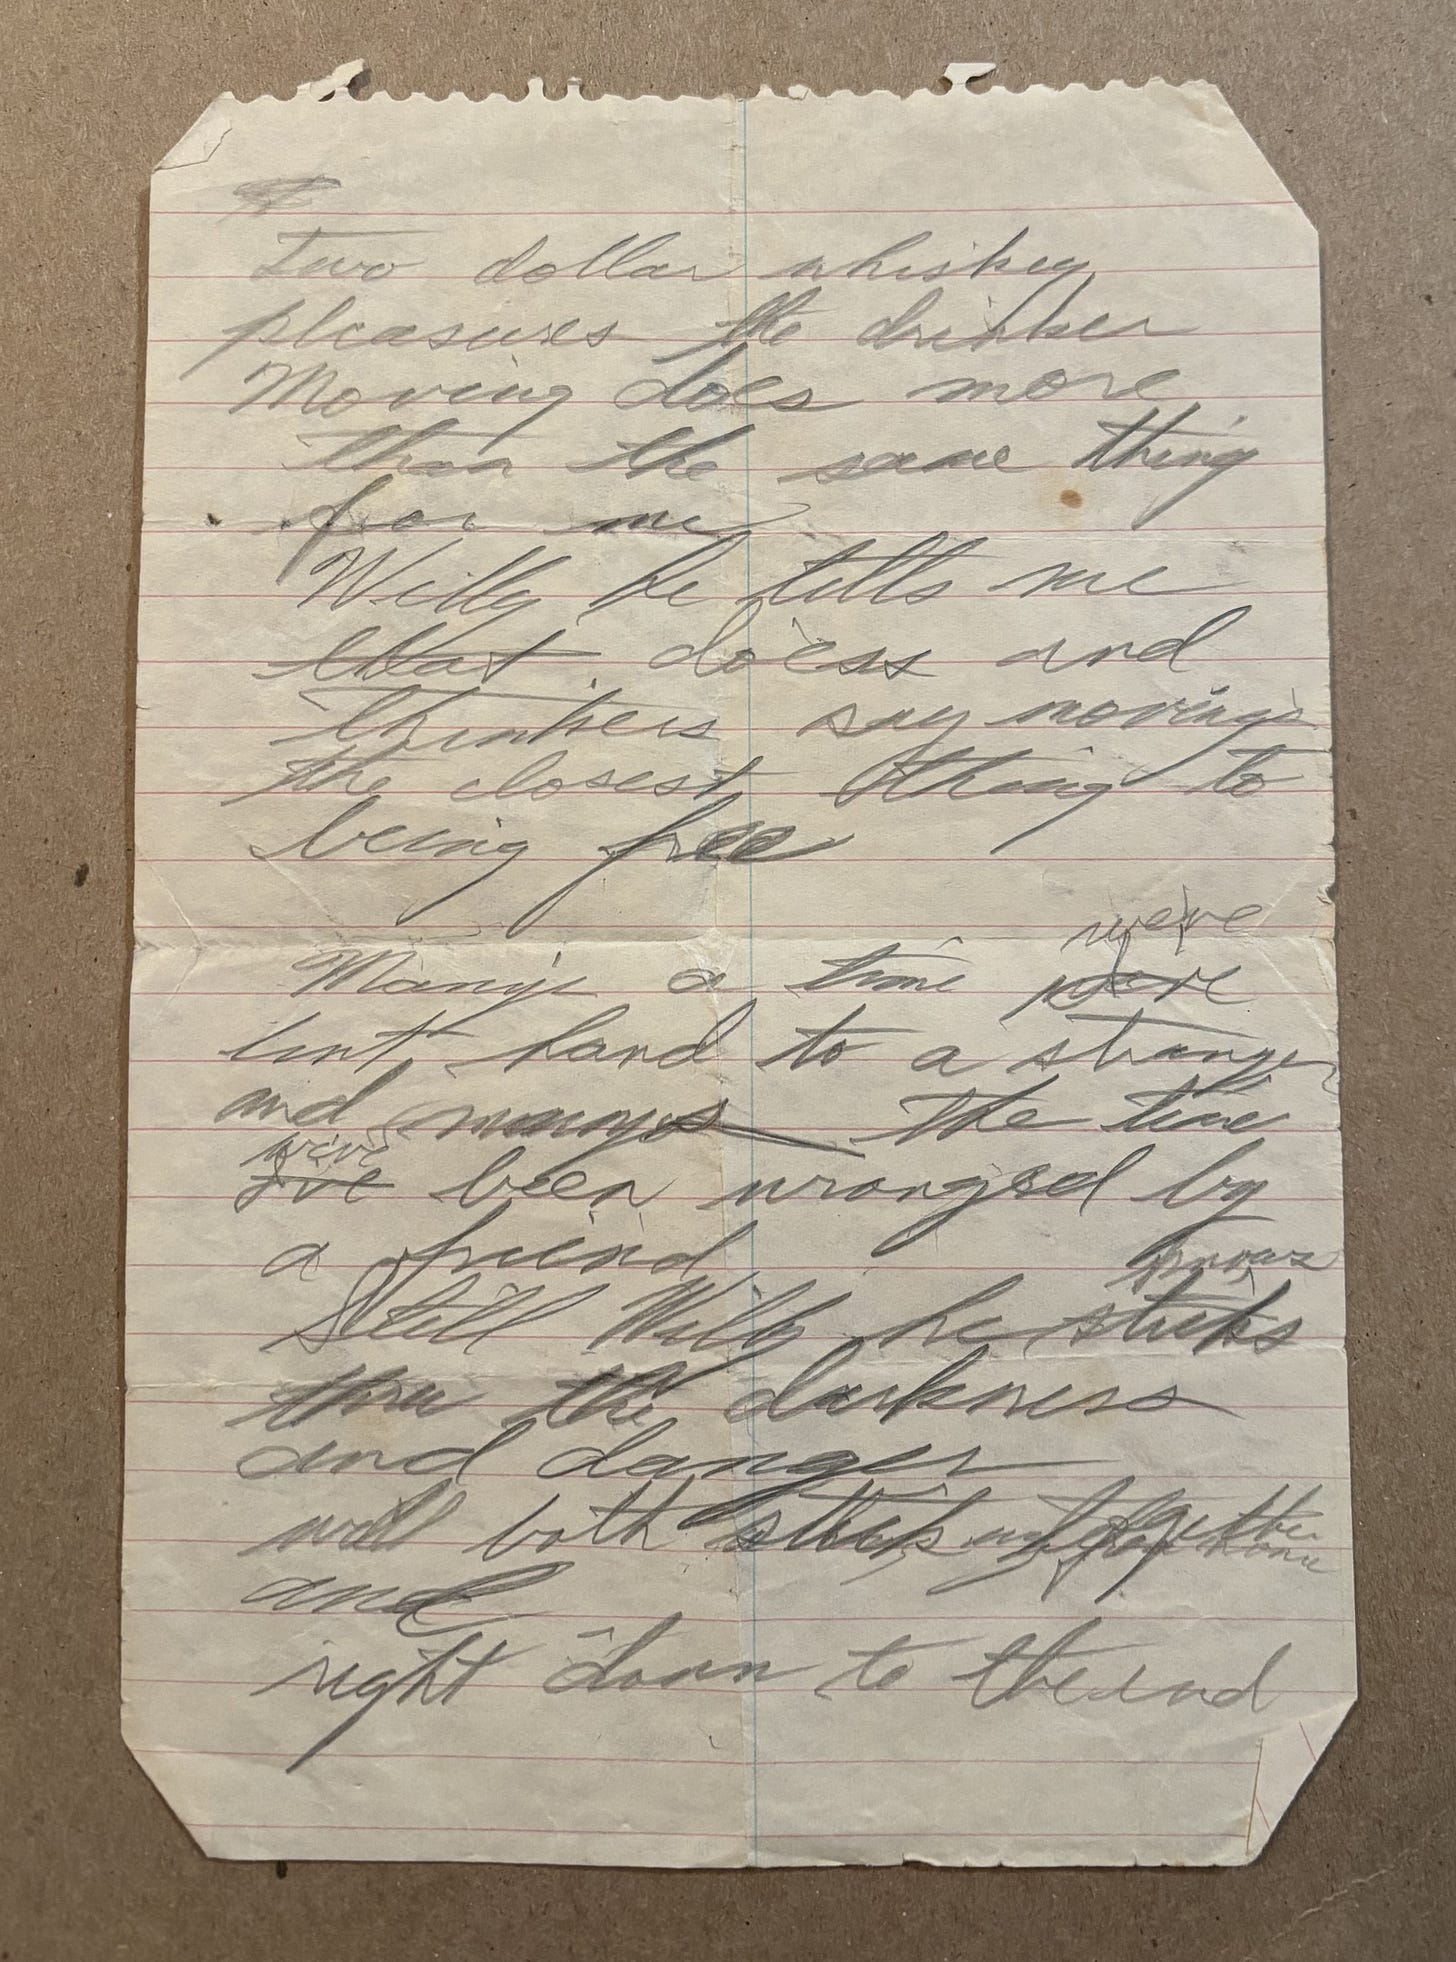 Two dollar whiskey
pleasures the drinker
Moving does more
than the same thing
for me
Willy he tells me
that doess and
thinkers say movings
the closest thing to
being free
we've
Manye a time
lent hand to a stranger
and manys the time
we've
I've been wronged by
a friend
knows
Still Willy he sticks
thru the darkness
and danger
will both stick together
and
right down to the end